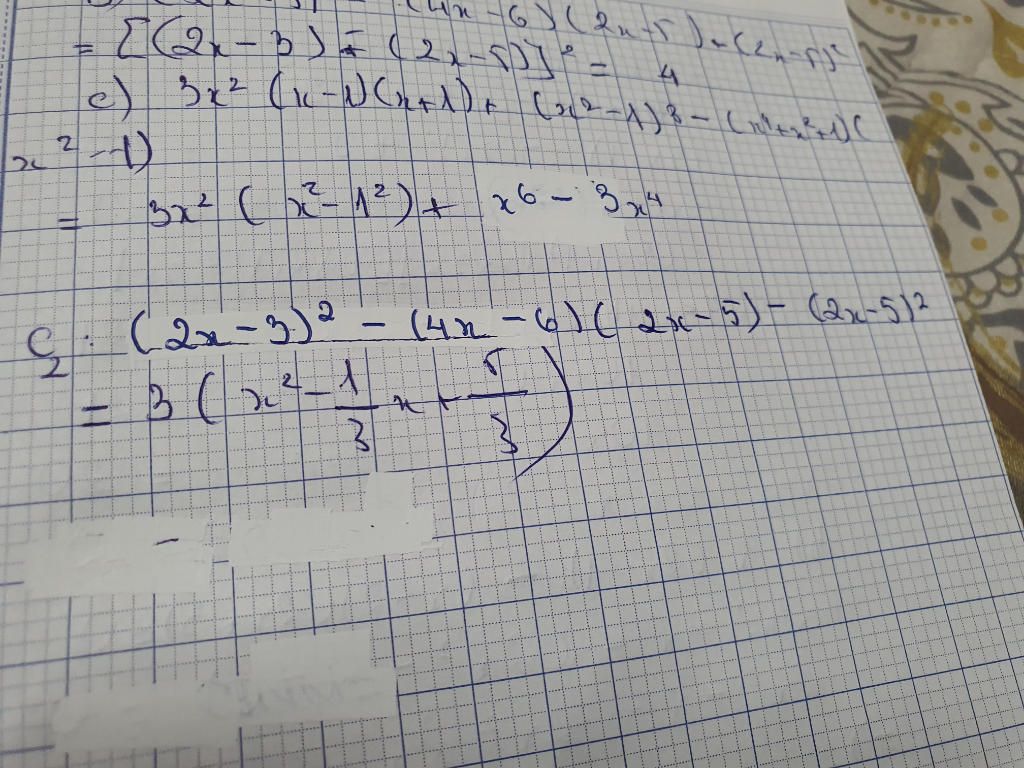 (4x-6)(2x-5)-(2x-5)²
= [(2x-3) - (2x-5)]² = 4
c) 3x² (x-1)(x+1) + (x²-1)3 - (x⁴+x²+1)(
x²-1)
= 3x² (x²-1²) + x6 - 3x4
C₂: (2x-3)² - (4x-6)(2x-5) - (2x-5)²
= 3(x² - 1/3 x + 5/3)